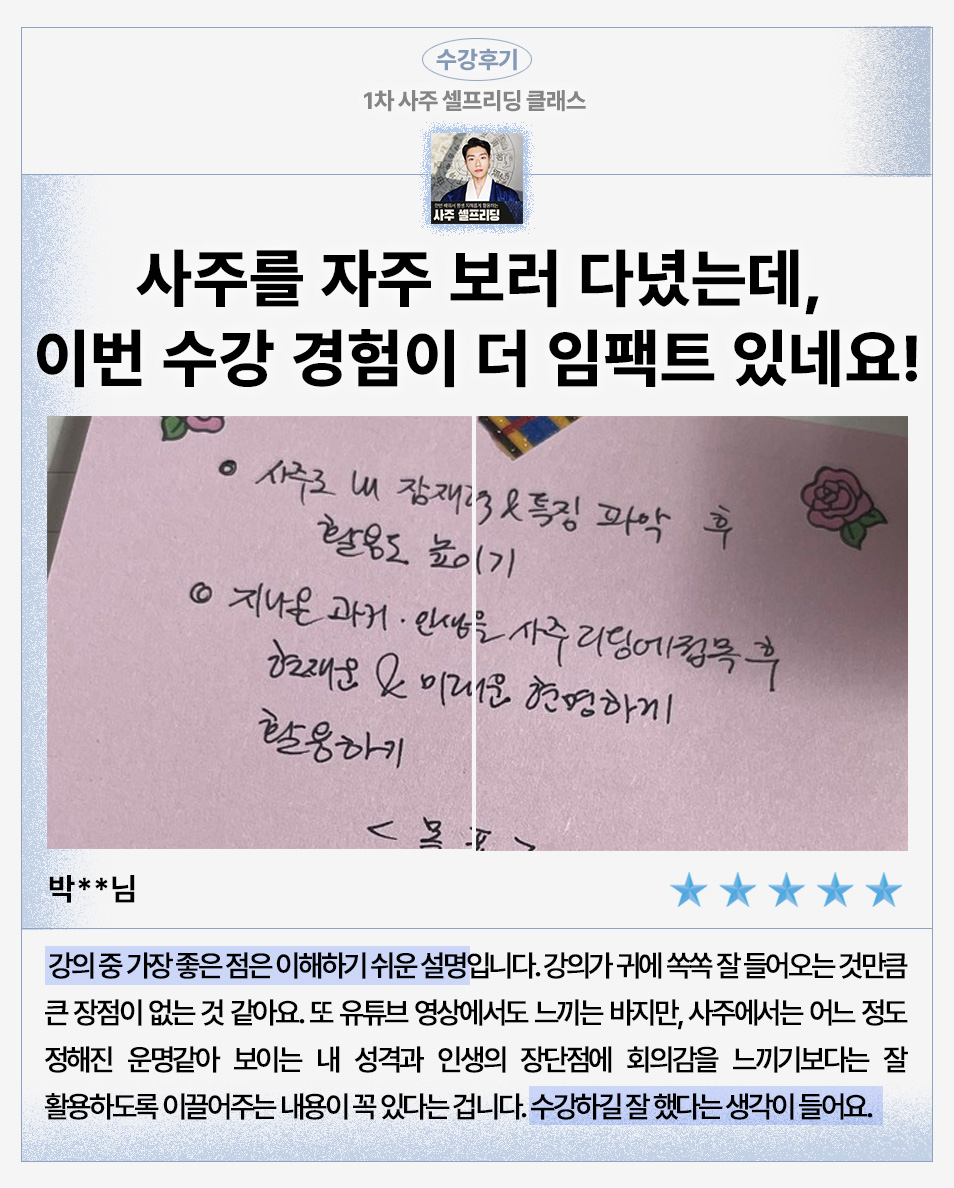 수강후기
1차 사주 셀프리딩 클래스
사주 셀프리딩
사주를 자주 보러 다녔는데,
이번 수강 경험이 더 임팩트 있네요!
사주로 내 잠재력&특징 파악 후
활용도 높이기
지나온 과거·인생을 사주리딩에 접목 후
현재운 & 미래운 현명하게
활용하기
< 목표 >
박**님
강의 중 가장 좋은 점은 이해하기 쉬운 설명입니다. 강의가 귀에 쏙쏙 잘 들어오는 것만큼
큰 장점이 없는 것 같아요. 또 유튜브 영상에서도 느끼는 바지만, 사주에서는 어느 정도
정해진 운명같아 보이는 내 성격과 인생의 장단점에 회의감을 느끼기보다는 잘
활용하도록 이끌어주는 내용이 꼭 있다는 겁니다. 수강하길 잘 했다는 생각이 들어요.